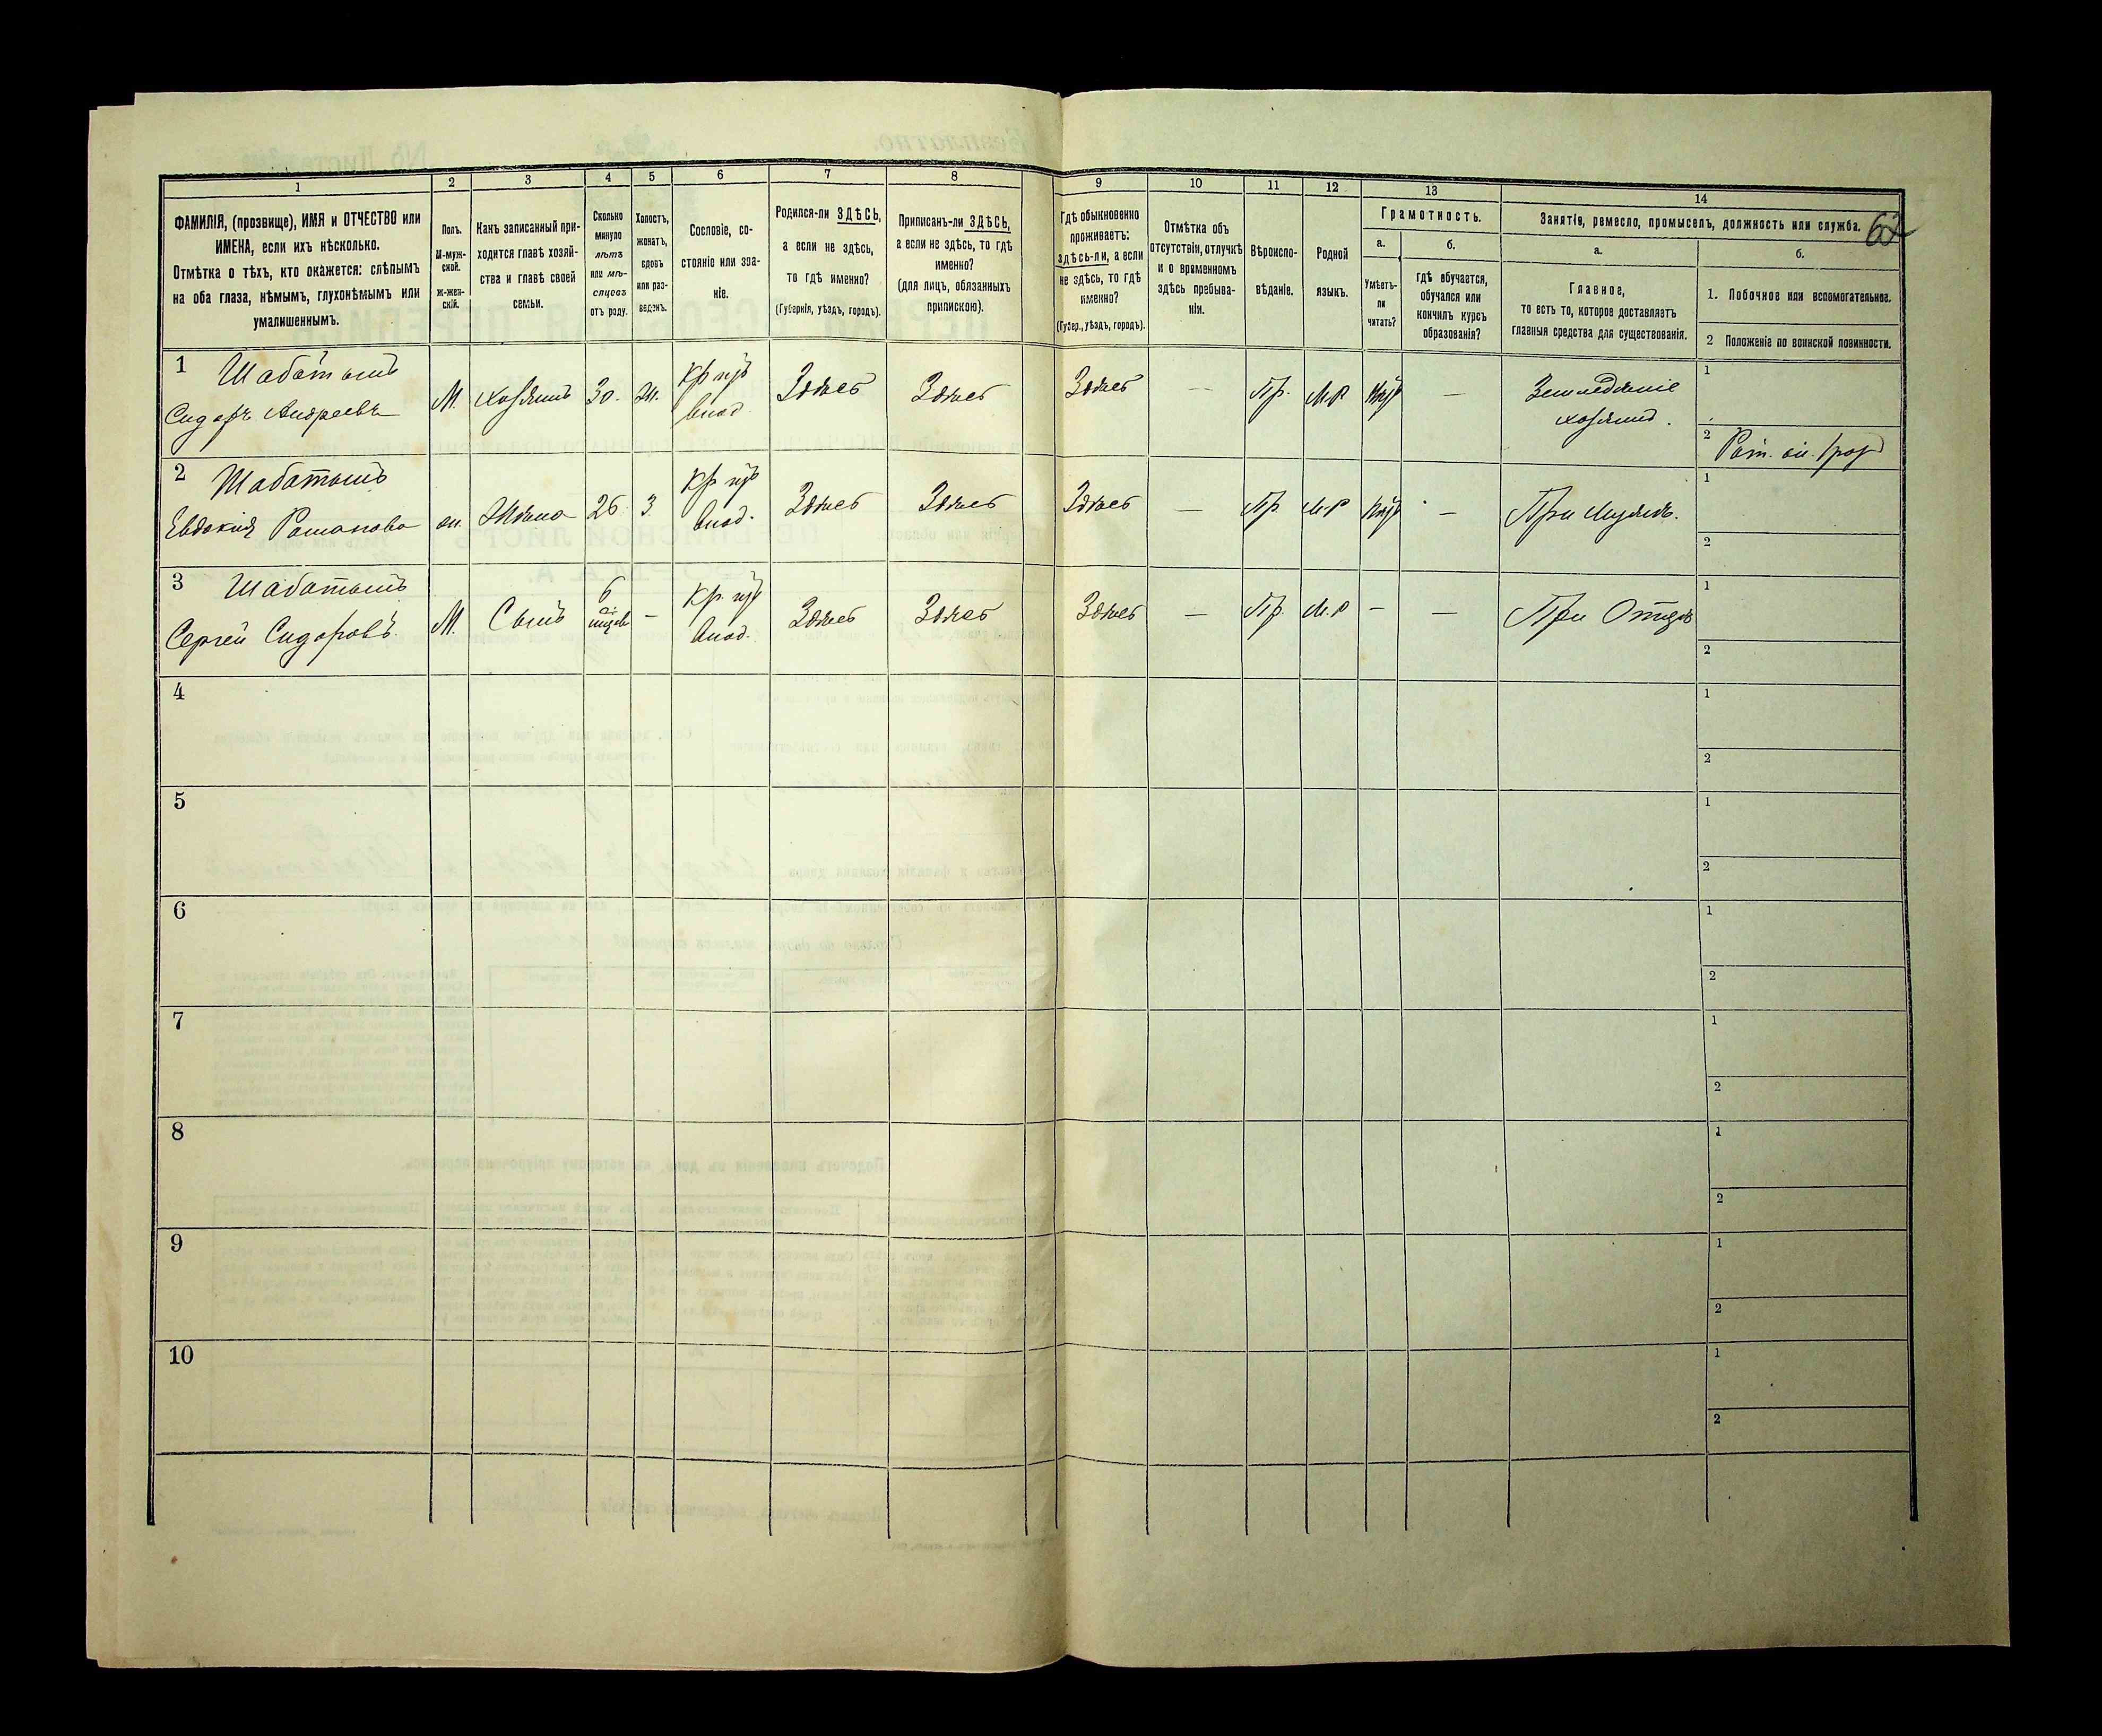 62
1 2 3 4 5 6 7 8 9 10 11 12 13 14
ФАМИЛІЯ, (прозвище), ИМЯ и ОТЧЕСТВО или
ИМЕНА, если ихъ нѣсколько.
Отмѣтка о тѣхъ, кто окажется: слѣпымъ
на оба глаза, нѣмымъ, глухонѣмымъ или
умалишеннымъ.
Полъ.
М-муж-
ской.
Ж-жен-
скій.
Какъ записанный при-
ходится главѣ хозяй-
ства и главѣ своей
семьи.
Сколько
минуло
лѣтъ
или мѣ-
сяцевъ
отъ роду.
Холостъ,
женатъ,
вдовъ
или раз-
веденъ.
Сословіе, со-
стояніе или зва-
ніе.
Родился-ли ЗДѢСЬ,
а если не здѣсь,
то гдѣ именно?
(Губернія, уѣздъ, городъ).
Приписанъ-ли ЗДѢСЬ,
а если не здѣсь, то гдѣ
именно?
(для лицъ, обязанныхъ
припискою).
Гдѣ обыкновенно
проживаетъ:
здѣсь-ли, а если
не здѣсь, то гдѣ
именно?
(Губер., уѣздъ, городъ).
Отмѣтка объ
отсутствіи, отлучкѣ
и о временномъ
здѣсь пребыва-
ніи.
Вѣроиспо-
вѣданіе.
Родной
языкъ.
Грамотность.
а.
Умѣетъ-
ли
читать?
б.
Гдѣ обучается,
обучался или
кончилъ курсъ
образованія?
Занятіе, ремесло, промыселъ, должность или служба.
а.
Главное,
то есть то, которое доставляетъ
главныя средства для существованія.
б.
1. Побочное или вспомогательное.
2 Положеніе по воинской повинности.
1 Шабатынъ
Сидоръ Андреевъ
М. хозяинъ 30. Ж.
Кр
Здѣсь Здѣсь Здѣсь — Пр. М.Р — Земледѣліе
хозяинъ.
1
2
2 Шабатынъ
Евдокия Романова
ж. Жена 26 З.
Кр
Здѣсь Здѣсь Здѣсь — Пр М.Р — При Мужѣ.
1
2
3 Шабатынъ
Сергей Сидоровъ.
М. Сынъ 6
—
Кр.
Здѣсь Здѣсь Здѣсь — Пр. М.Р — — При Отцѣ
1
2
4
1
2
5
1
2
6
1
2
7
1
2
8
1
2
9
1
2
10
1
2